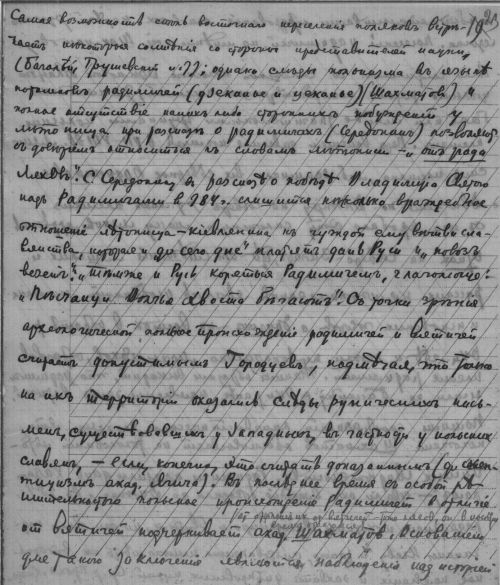 Самая возможность столь восточного переселения поляков встре-
чает некоторыя сомнѣния со стороны представителей науки,
(Багалѣй, Грушевский и др.); однако слѣды полонизма въ языкѣ
потомков радимичей (дзеканье и цеканье) (Шахматов) и
полное отсутствие каких либо сторонних побуждений у
лѣтописца при разсказѣ о радимичах (Середонин) позволяют
съ довѣрием относиться къ словам лѣтописи – "отъ рода
Ляховъ". С. Середонину в разсказѣ о побѣдѣ Владимира Святого
над Радимичами в 984 г. слышится нѣсколько враждебное
отношение лѣтописца – киевлянина къ чуждой ему вѣтви сла-
вянства, которая и "до сего дне" платитъ дань Руси и "повоз
везетъ". "Тѣмже и Русь корятся Радимичемъ, глаголюще:
"Пѣсчаньци волчья хвоста бѣгаютъ". Съ точки зрѣния
археологической польское происхождение радимичей и вятичей
считает допустимымъ Городцовъ, подмѣчая, что только
на ихъ территории оказались слѣды рунических пись-
мен, существовавших у Западных, въ частности у польских
славян, – если, конечно, это считать доказанным (до скеп-
тицизма акад. Ягича). Въ последнее время съ особой рѣ-
шительностью польское происхождение Радимичей в отличие
от вятичей подчеркивает акад. Шахматов. Основанием
для такого заключения являются наблюдения над историей